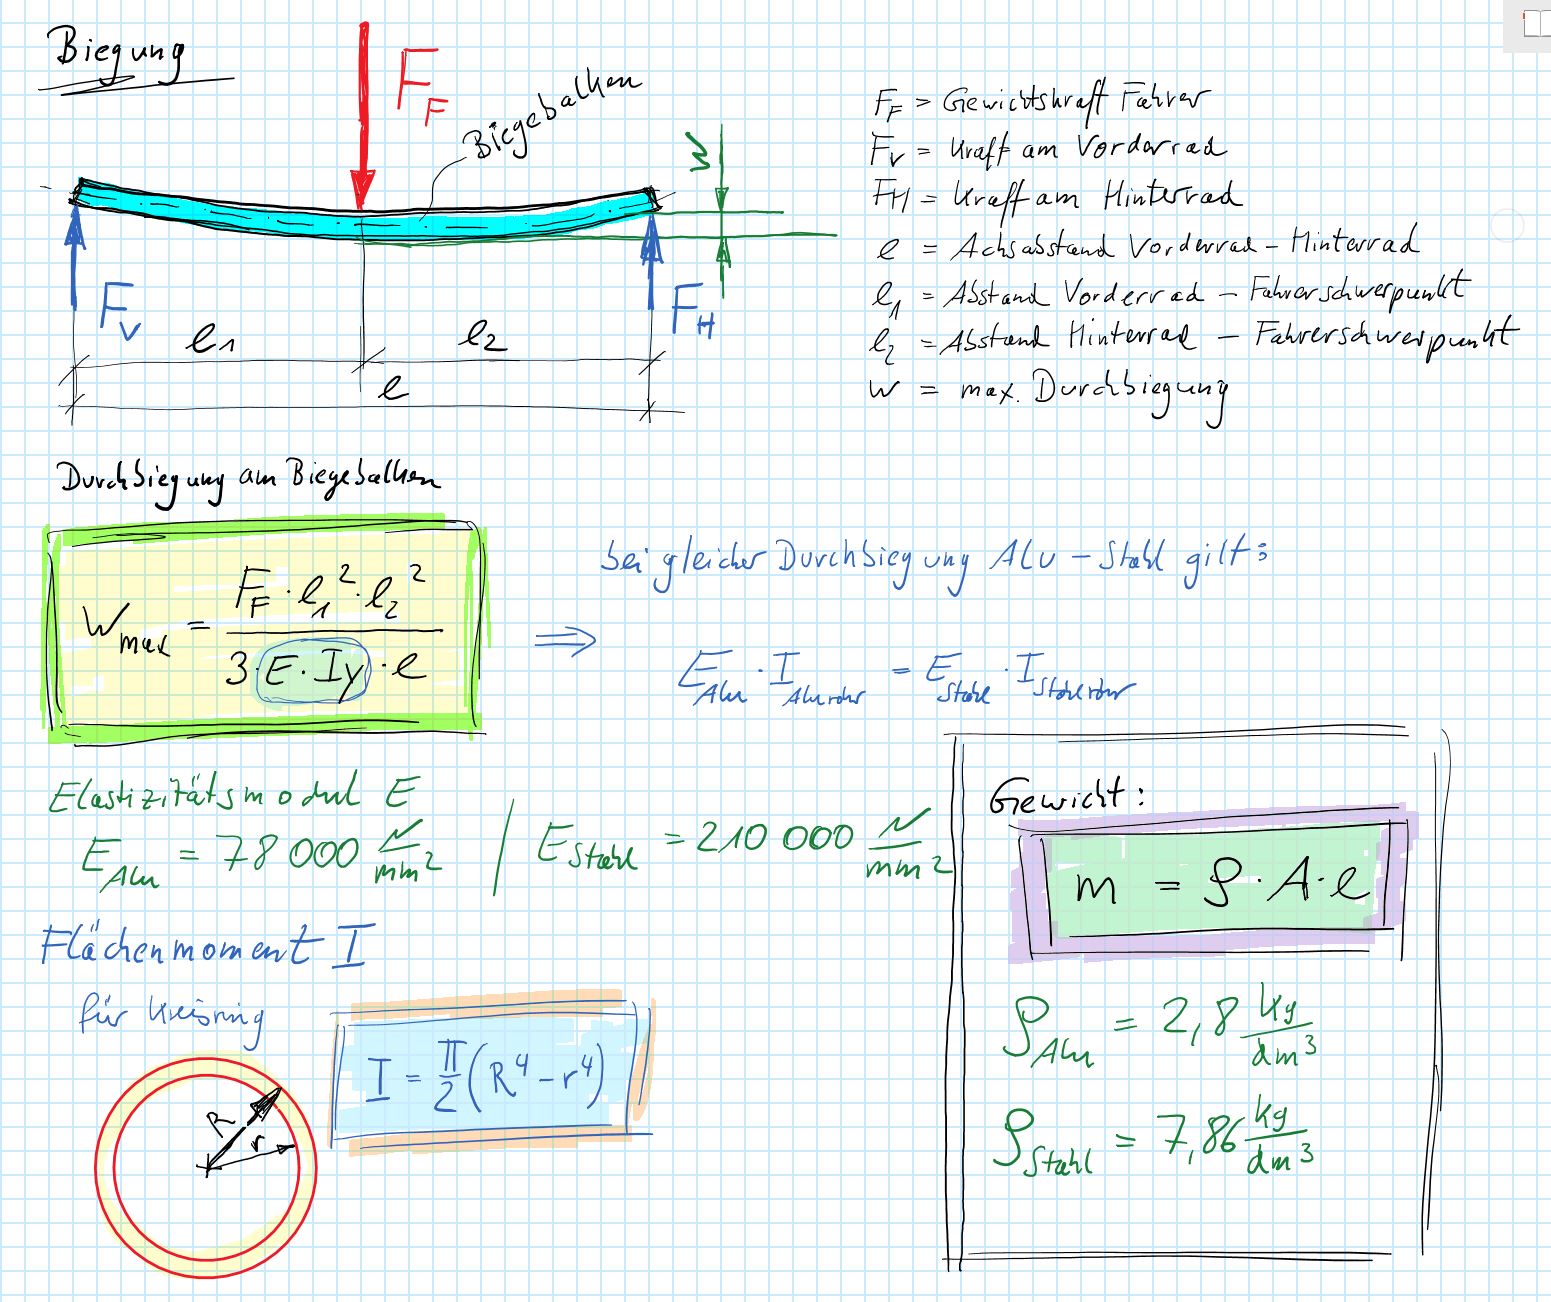 Biegung
F_F
Biegebalken
w
F_V
F_H
l_1
l_2
l
F_F = Gewichtskraft Fahrer
F_V = Kraft am Vorderrad
F_H = Kraft am Hinterrad
l = Achsabstand Vorderrad – Hinterrad
l_1 = Abstand Vorderrad – Fahrerschwerpunkt
l_2 = Abstand Hinterrad – Fahrerschwerpunkt
w = max. Durchbiegung
Durchbiegung am Biegebalken
w_max = (F_F · l_1² · l_2²) / (3 · E · Iy · l)
bei gleicher Durchbiegung Alu – Stahl gilt:
⇒ E_Alu · I_Alurohr = E_Stahl · I_Stahlrohr
Elastizitätsmodul E
E_Alu = 78 000 N/mm² / E_Stahl = 210 000 N/mm²
Flächenmoment I
für Kreisring
R
r
I = π/2 (R⁴ – r⁴)
Gewicht:
m = ρ · A · l
ρ_Alu = 2,8 kg/dm³
ρ_Stahl = 7,86 kg/dm³